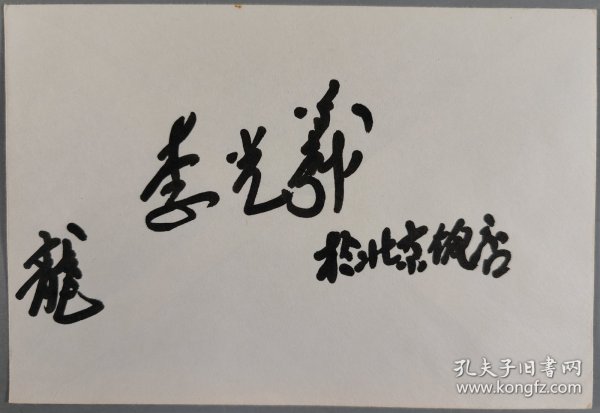 李光羲
龍
於北京饭店
孔夫子旧书网
www.kongfz.com